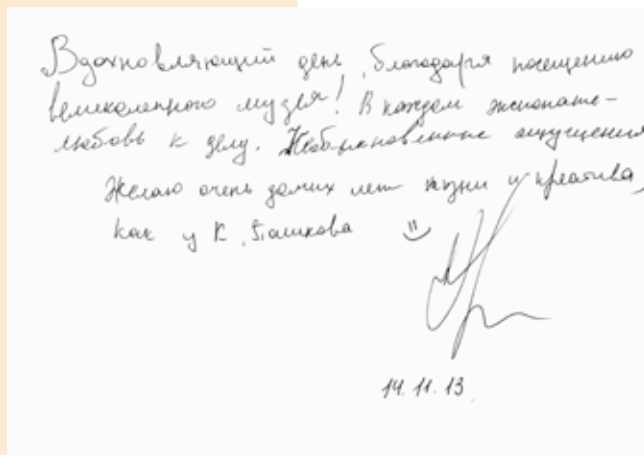 Вдохновляющий день, благодаря посещению
великолепного музея! В каждом экспонате -
любовь к делу. Необыкновенные ощущения
Желаю очень долгих лет жизни и креатива,
как у К. Башкова
14.11.13